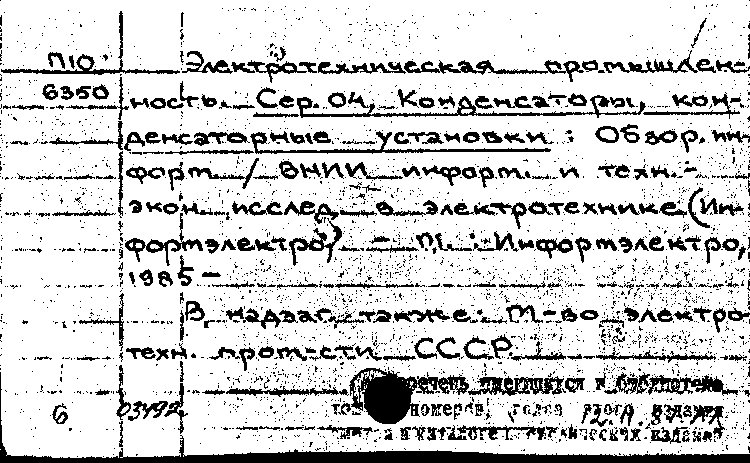 П10 Электротехническая промышлен-
6350 ность. Сер. 04, Конденсаторы, кон-
денсаторные установки : Обзор. ин-
форм. / ВНИИ информ. и техн.-
экон. исслед. в электротехнике (Ин-
формэлектро) – М. : Информэлектро,
1985 –
В надзаг. также: М-во электро-
техн. пром-сти СССР.
имеющихся в библиотеке
номеров, годов этого издания
в каталоге издания
6. 03492